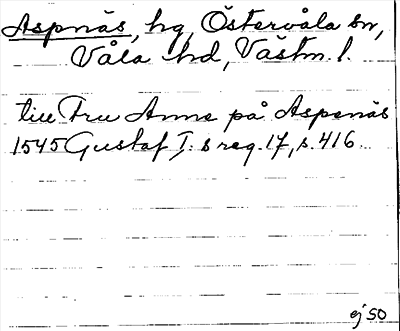 Aspnäs, hg, Östervåla sn,
Våla hd, Västm. l.
till Fru Anna på Aspenäs
1545 Gustaf I:s reg. 17, s. 416
ej 50